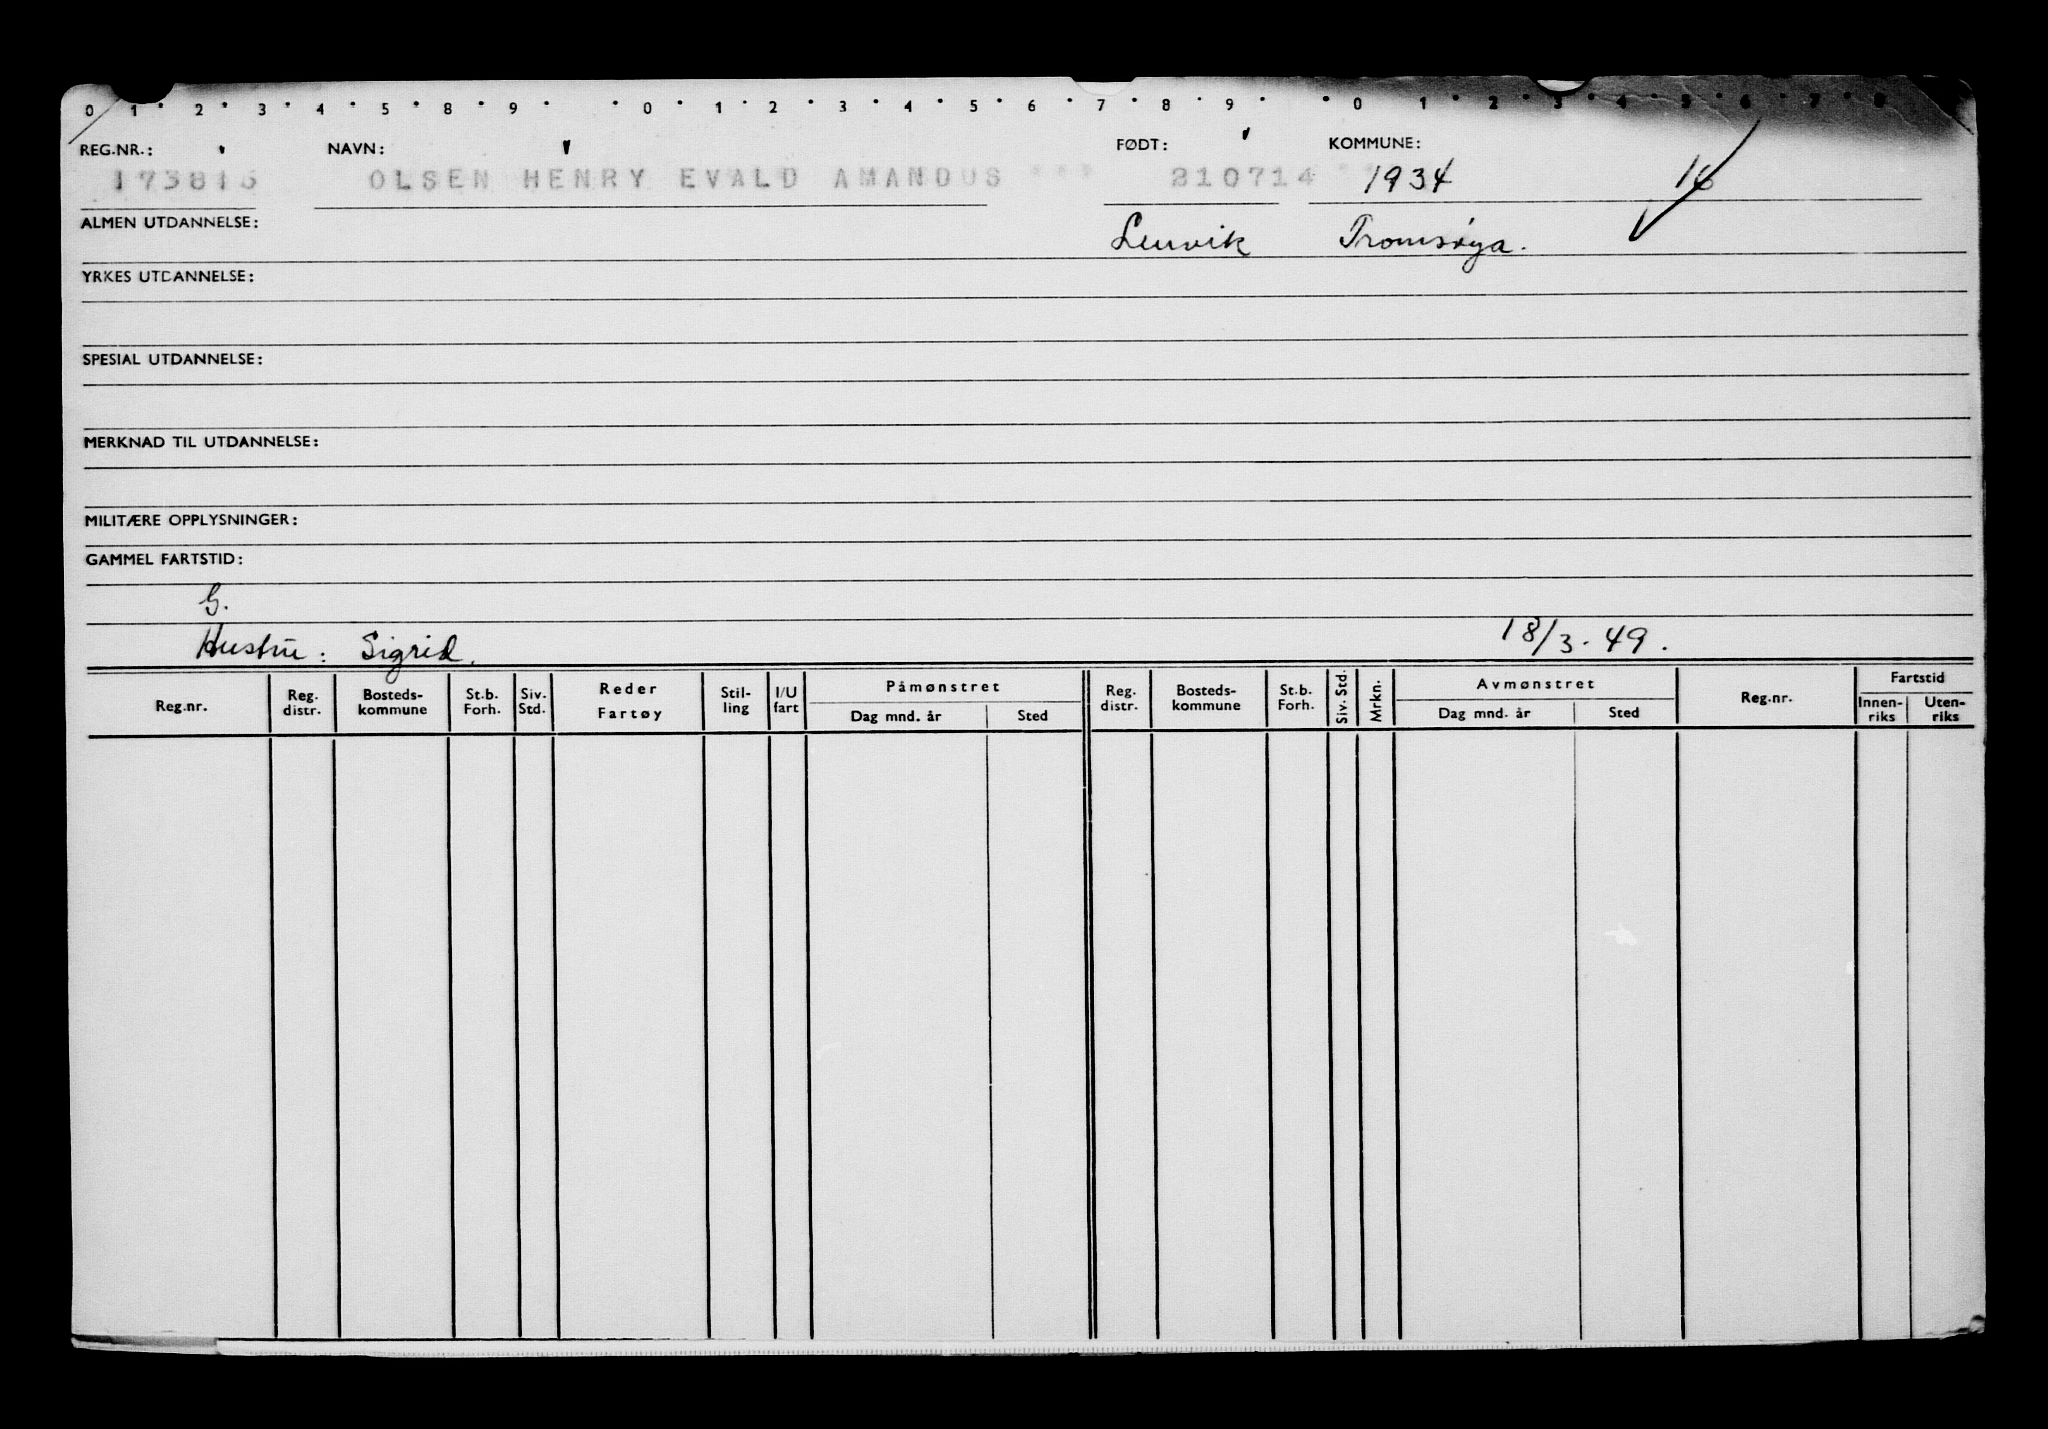 0 1 2 3 4 5 8 9 0 1 2 3 4 5 6 7 8 9 0 1 2 3 4 5 6 7 8
REG.NR.: NAVN: FØDT: KOMMUNE:
OLSEN HENRY EVALD AMANDUS 210714 1934 16
ALMEN UTDANNELSE: Lenvik Tromsøya.
YRKES UTDANNELSE:
SPESIAL UTDANNELSE:
MERKNAD TIL UTDANNELSE:
MILITÆRE OPPLYSNINGER:
GAMMEL FARTSTID:
G.
Hustru: Sigrid. 18/3.49.
Reg.nr. Reg. distr. Bosteds-kommune St.b. Forh. Siv. Std. Reder Fartøy Stil-ling I/U fart Påmønstret Dag mnd. år Sted Reg. distr. Bosteds-kommune St.b. Forh. Siv. Std. Mrkn. Avmønstret Dag mnd. år Sted Reg.nr. Fartstid Innen-riks Uten-riks